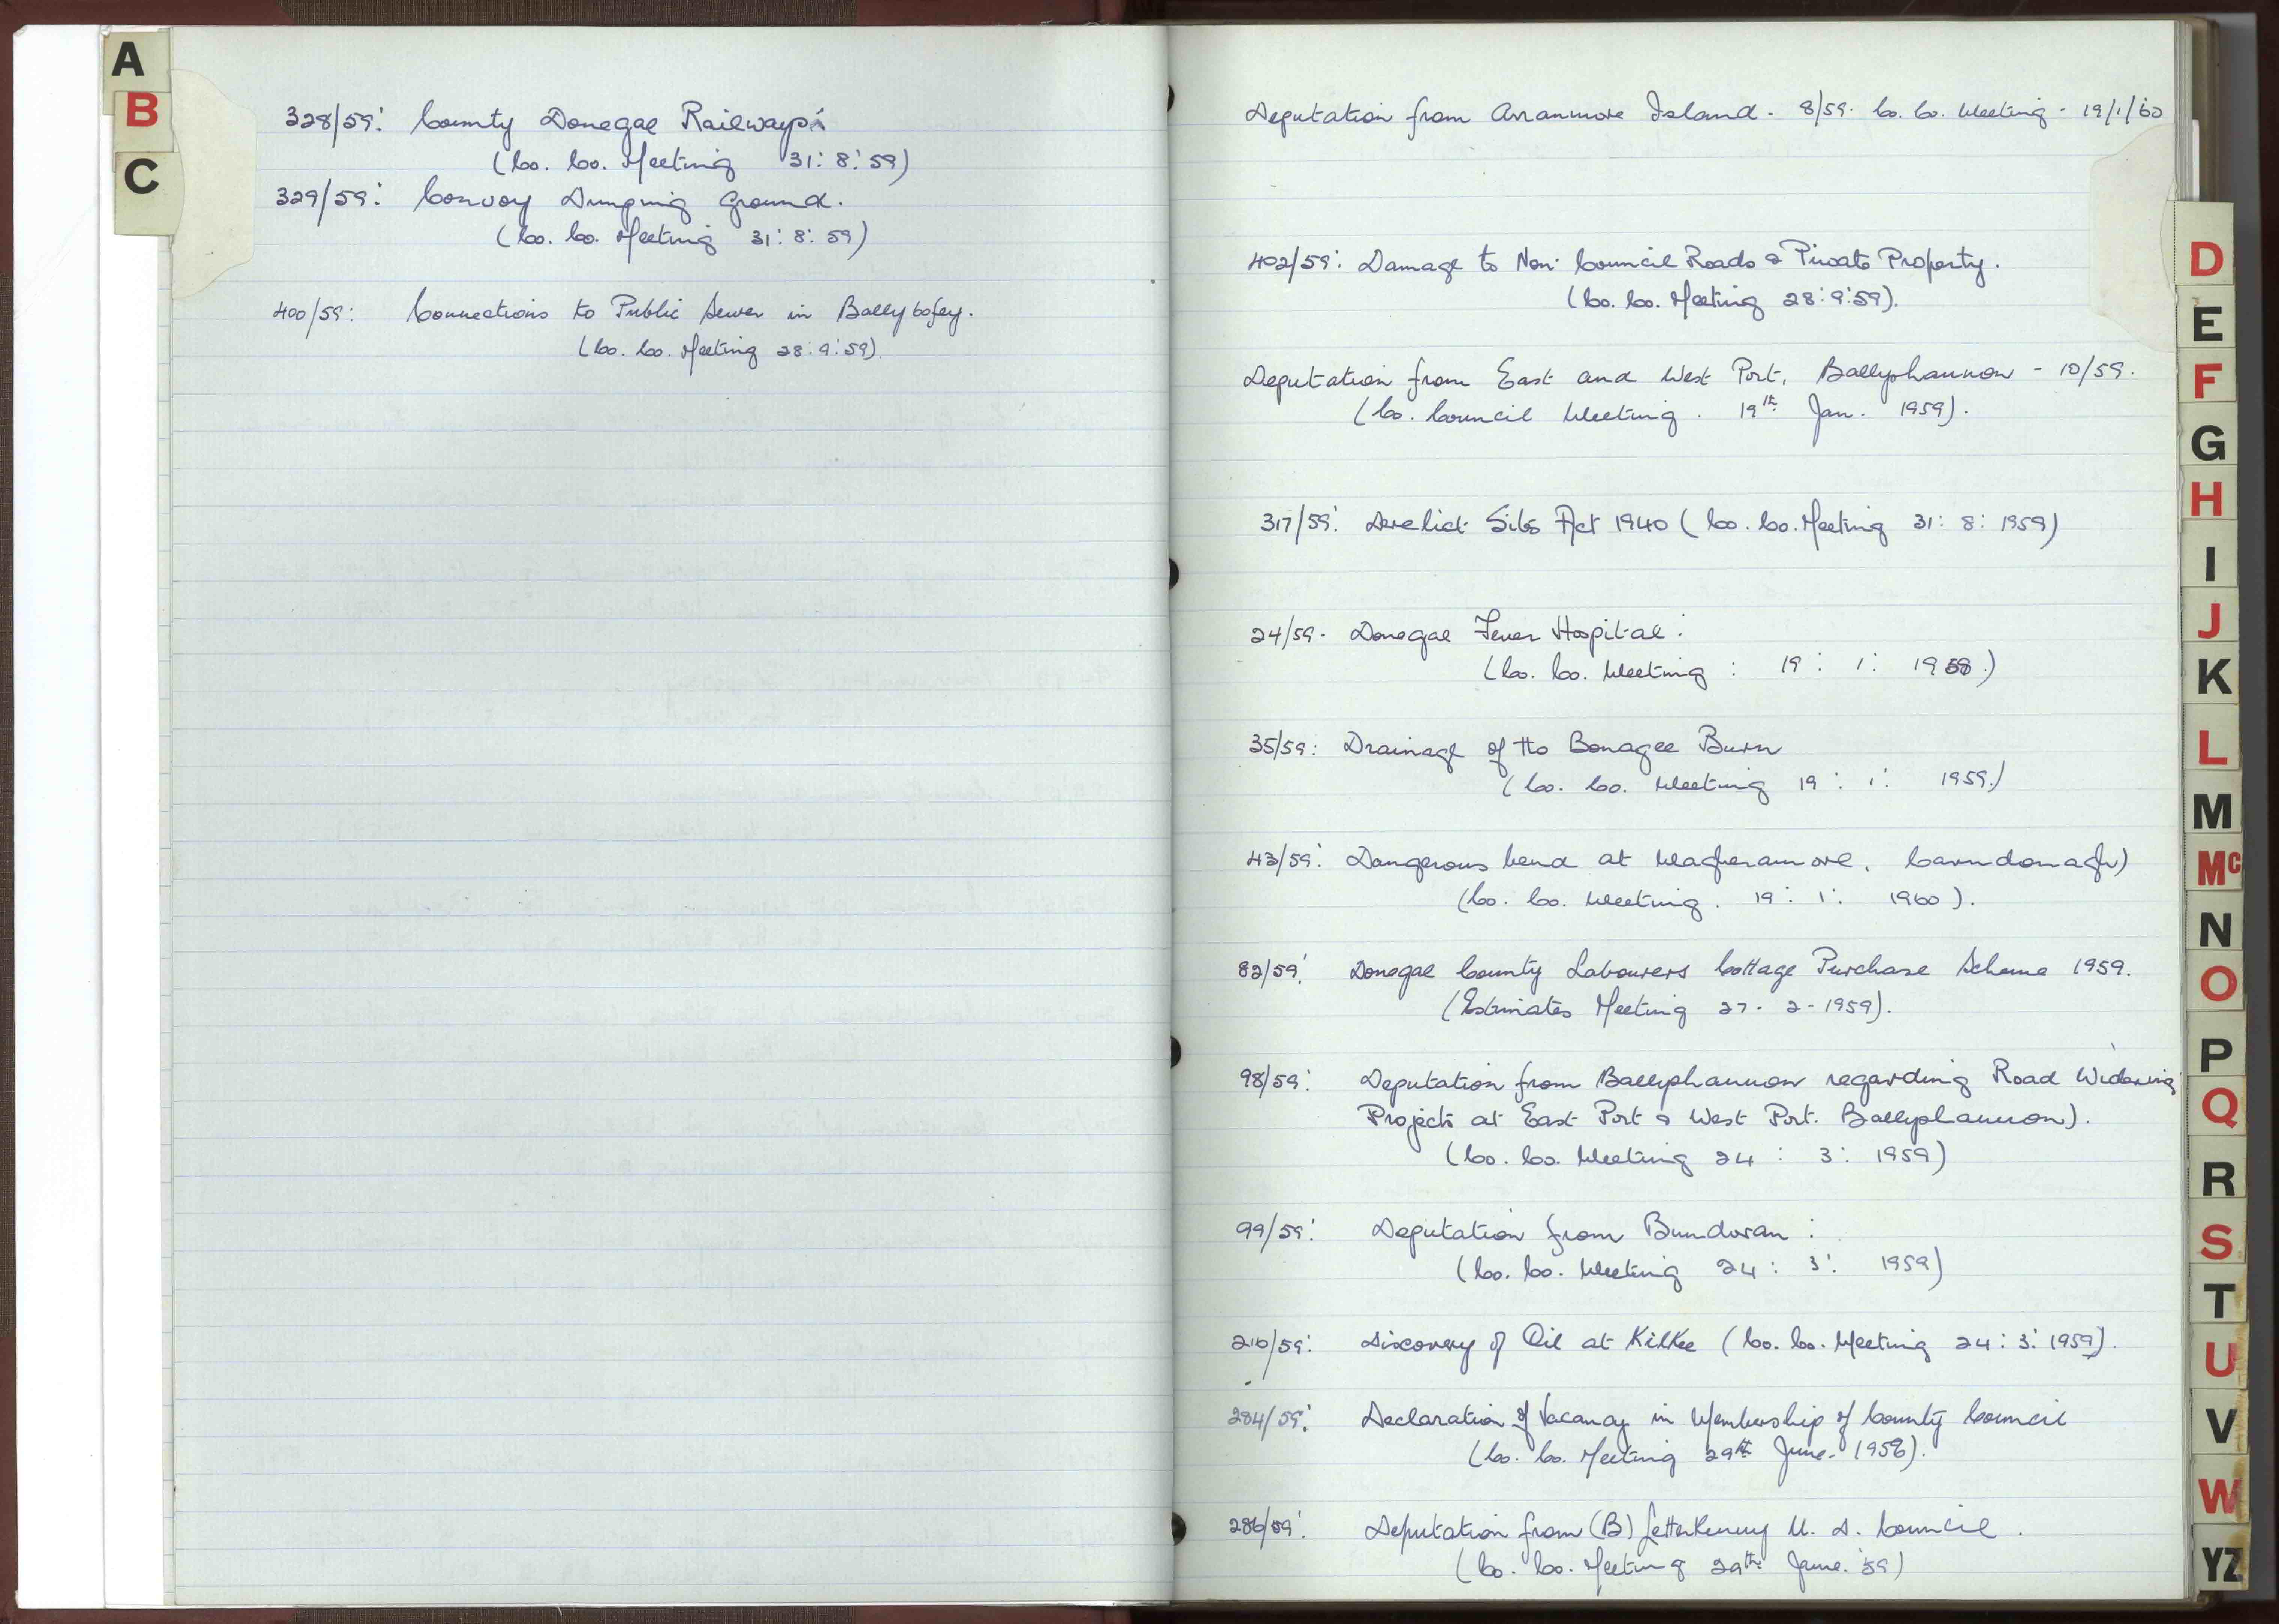 A
B
C
328/59: County Donegal Railways:
(Co. Co. Meeting 31:8:59)
329/59: Convoy Dumping Ground.
(Co. Co. Meeting 31:8:59)
400/59: Connections to Public Sewer in Ballybofey.
(Co. Co. Meeting 28:9:59).
Deputation from Arranmore Island - 8/59. Co. Co. Meeting - 19/1/60
402/59: Damage to Non-Council Roads & Private Property.
(Co. Co. Meeting 28:9:59).
Deputation from East and West Port, Ballyshannon - 10/59.
(Co. Council Meeting. 19th Jan. 1959).
317/59: Derelict Sites Act 1940 (Co. Co. Meeting 31:8:1959)
24/59- Donegal Fever Hospital:
(Co. Co. Meeting : 19:1:1958.)
35/59: Drainage of the Bonagee Burn
(Co. Co. Meeting 19:1:1959.)
43/59: Dangerous bend at Magheramore, Carndonagh)
(Co. Co. Meeting. 19:1:1960).
82/59: Donegal County Labourers Cottage Purchase Scheme 1959.
(Estimates Meeting 27-2-1959).
98/59: Deputation from Ballyshannon regarding Road Widening
Projects at East Port & West Port. Ballyshannon).
(Co. Co. Meeting 24:3:1959)
99/59: Deputation from Bundoran:
(Co. Co. Meeting 24:3:1959)
210/59: Discovery of Oil at Kilkee (Co. Co. Meeting 24:3:1959).
284/59: Declaration of Vacancy in Membership of County Council
(Co. Co. Meeting 29th June. 1958).
286/59: Deputation from (B) Letterkenny U. D. Council.
(Co. Co. Meeting 29th June. '59)
D
E
F
G
H
I
J
K
L
M
Mc
N
O
P
Q
R
S
T
U
V
W
YZ